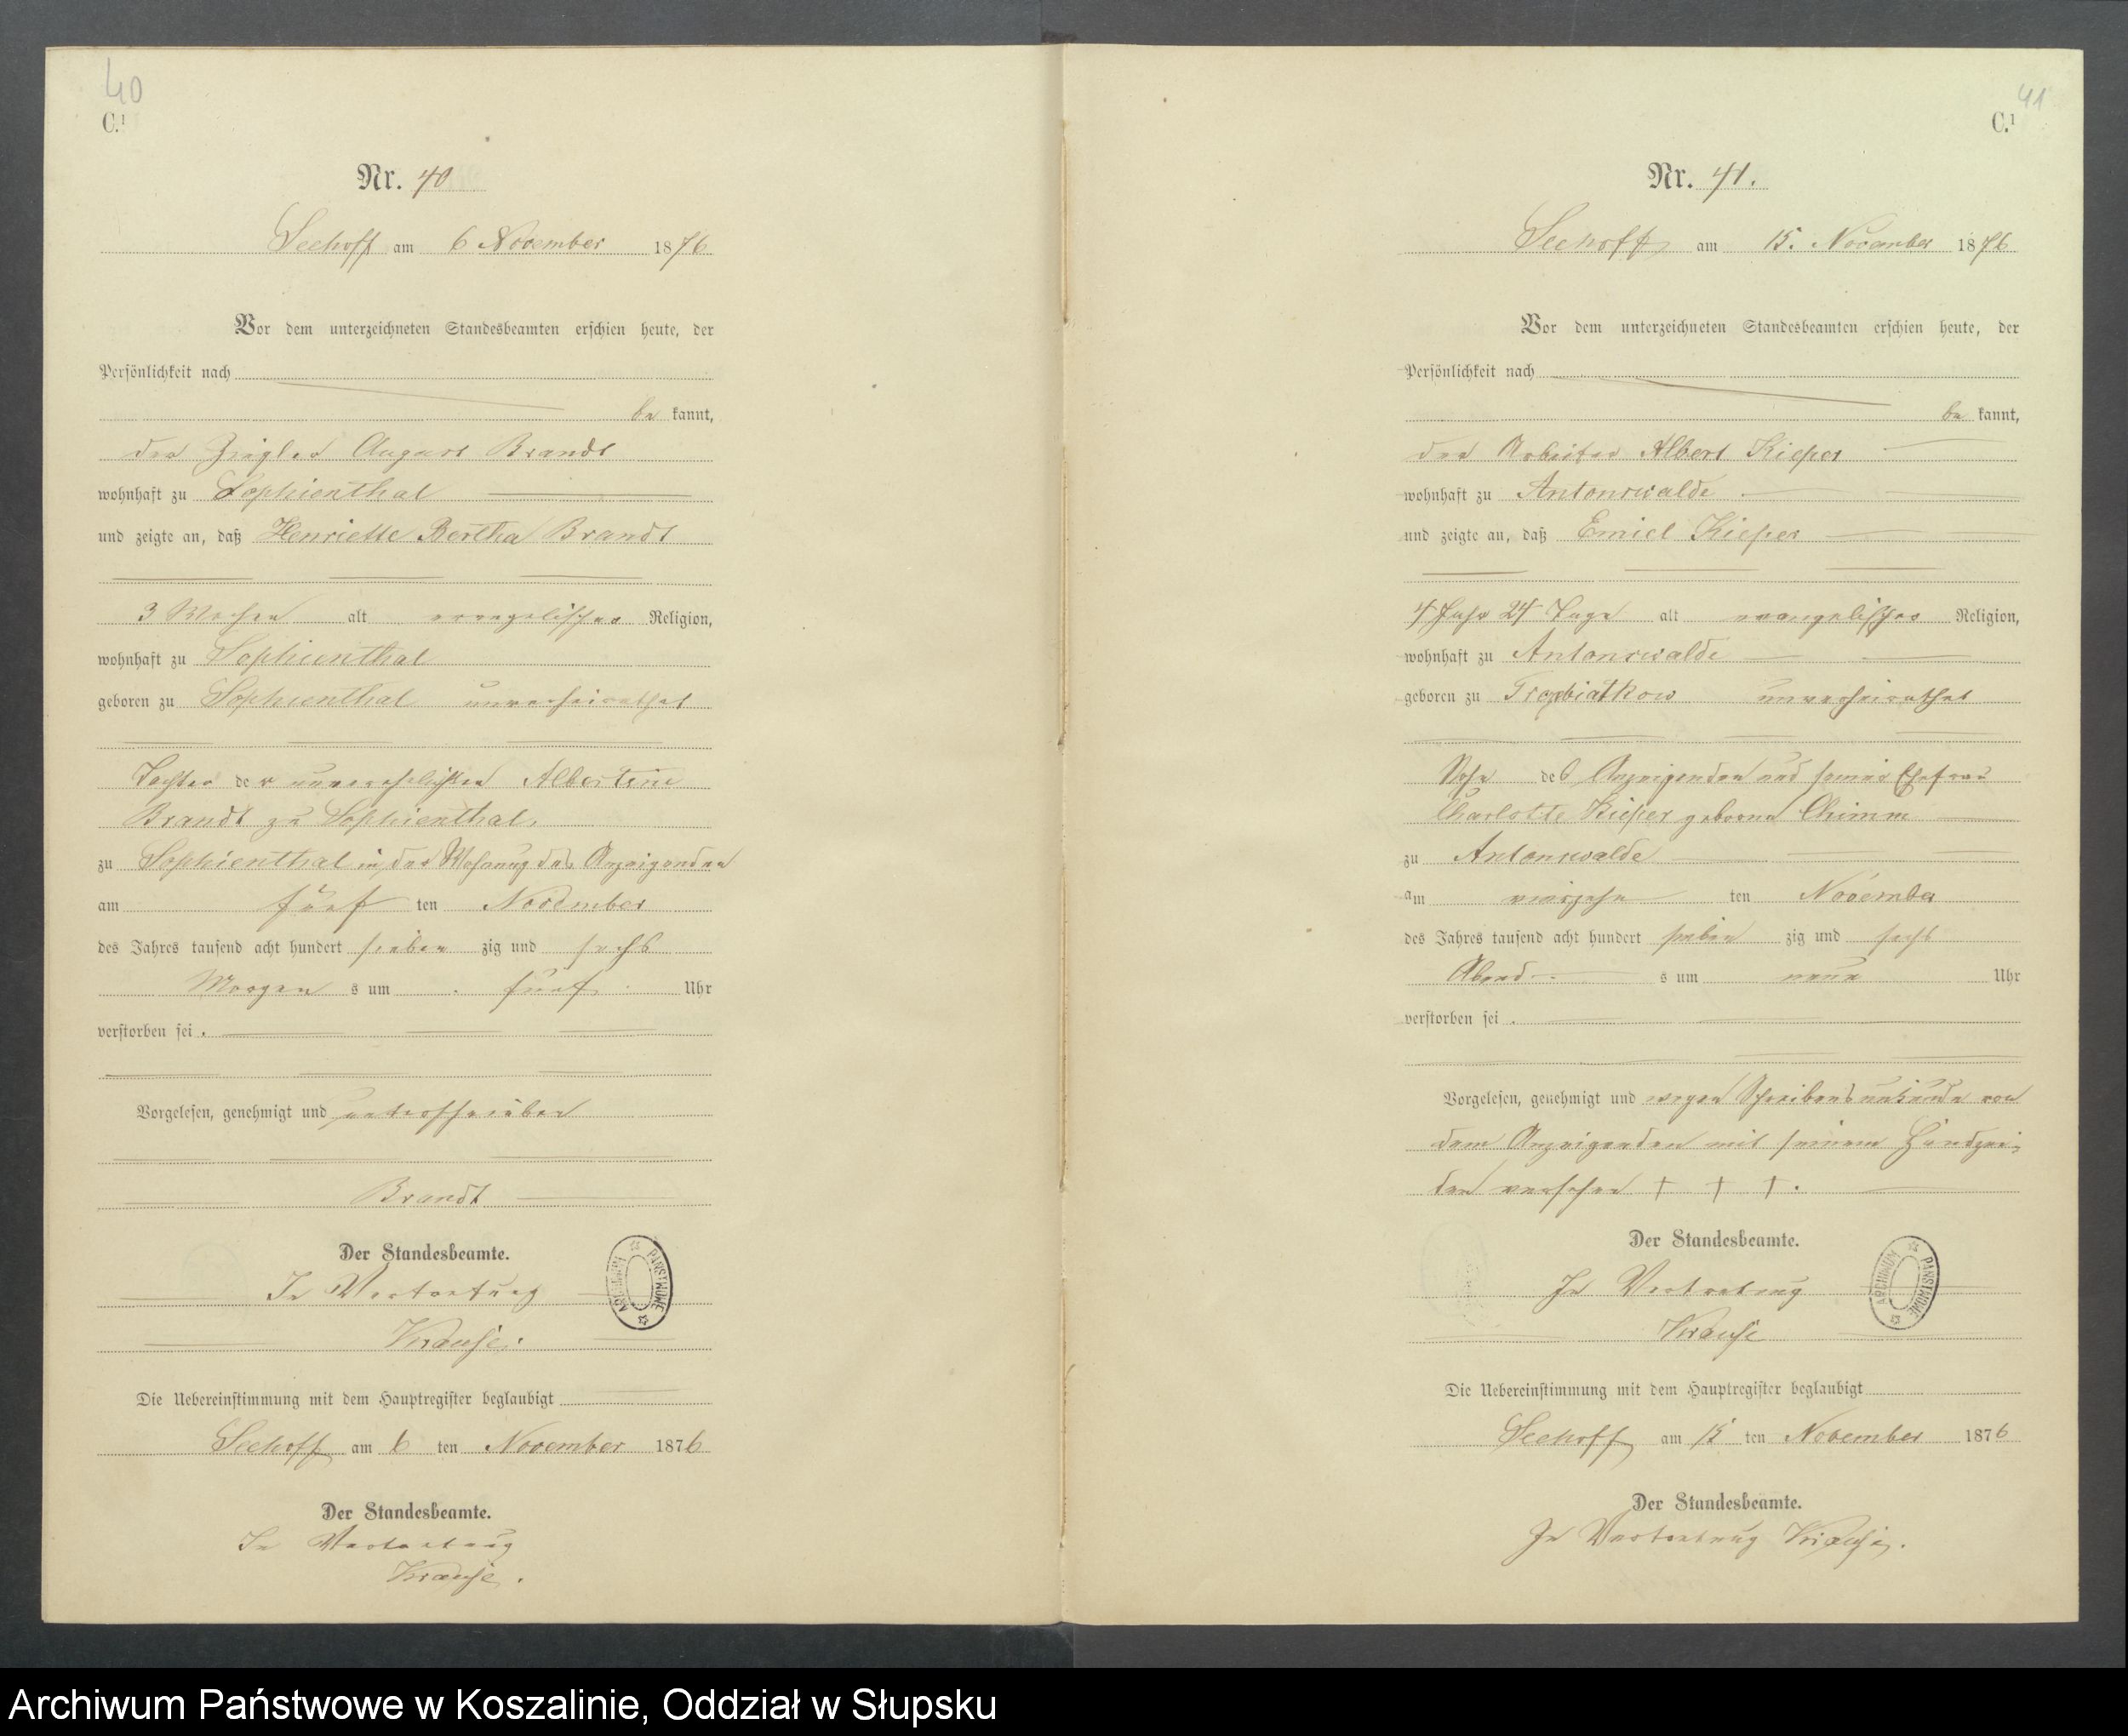 40
C.¹
Nr. 40
Seehoff am 6 November 1876
Vor dem unterzeichneten Standesbeamten erschien heute, der
Persönlichkeit nach
be kannt,
der Ziegler August Brandt
wohnhaft zu Sophienthal
und zeigte an, daß Henriette Bertha Brandt
3 Wochen alt evangelischer Religion,
wohnhaft zu Sophienthal
geboren zu Sophienthal unverheirathet
Tochter der unverehelichten Albertine
Brandt zu Sophienthal
zu Sophienthal in der Wohnung des Anzeigenden
am fünf ten November
des Jahres tausend acht hundert sieben zig und sechs
Morgen s um fünf Uhr
verstorben sei.
Vorgelesen, genehmigt und unterschrieben
Brandt
Der Standesbeamte.
In Vertretung
Krause.
ARCHIWUM PAŃSTWOWE
Die Uebereinstimmung mit dem Hauptregister beglaubigt
Seehoff am 6 ten November 1876
Der Standesbeamte.
In Vertretung
Krause.
41
C.¹
Nr. 41.
Seehoff am 15. November 1876
Vor dem unterzeichneten Standesbeamten erschien heute, der
Persönlichkeit nach
be kannt,
der Arbeiter Albert Kieper
wohnhaft zu Antonswalde
und zeigte an, daß Emiel Kieper
4 Jahr 24 Tage alt evangelischer Religion,
wohnhaft zu Antonswalde
geboren zu Trzebiatkow unverheirathet
Sohn des Anzeigenden und seiner Ehefrau
Charlotte Kieper geborne
zu Antonswalde
am vierzehn ten November
des Jahres tausend acht hundert sieben zig und sechs
Abend s um neun Uhr
verstorben sei.
Vorgelesen, genehmigt und wegen Schreibensunkunde von
dem Anzeigenden mit seinem Handzei-
chen versehen † † †.
Der Standesbeamte.
In Vertretung
Krause
ARCHIWUM PAŃSTWOWE
Die Uebereinstimmung mit dem Hauptregister beglaubigt
Seehoff am 15 ten November 1876
Der Standesbeamte.
In Vertretung Krause.
Archiwum Państwowe w Koszalinie, Oddział w Słupsku